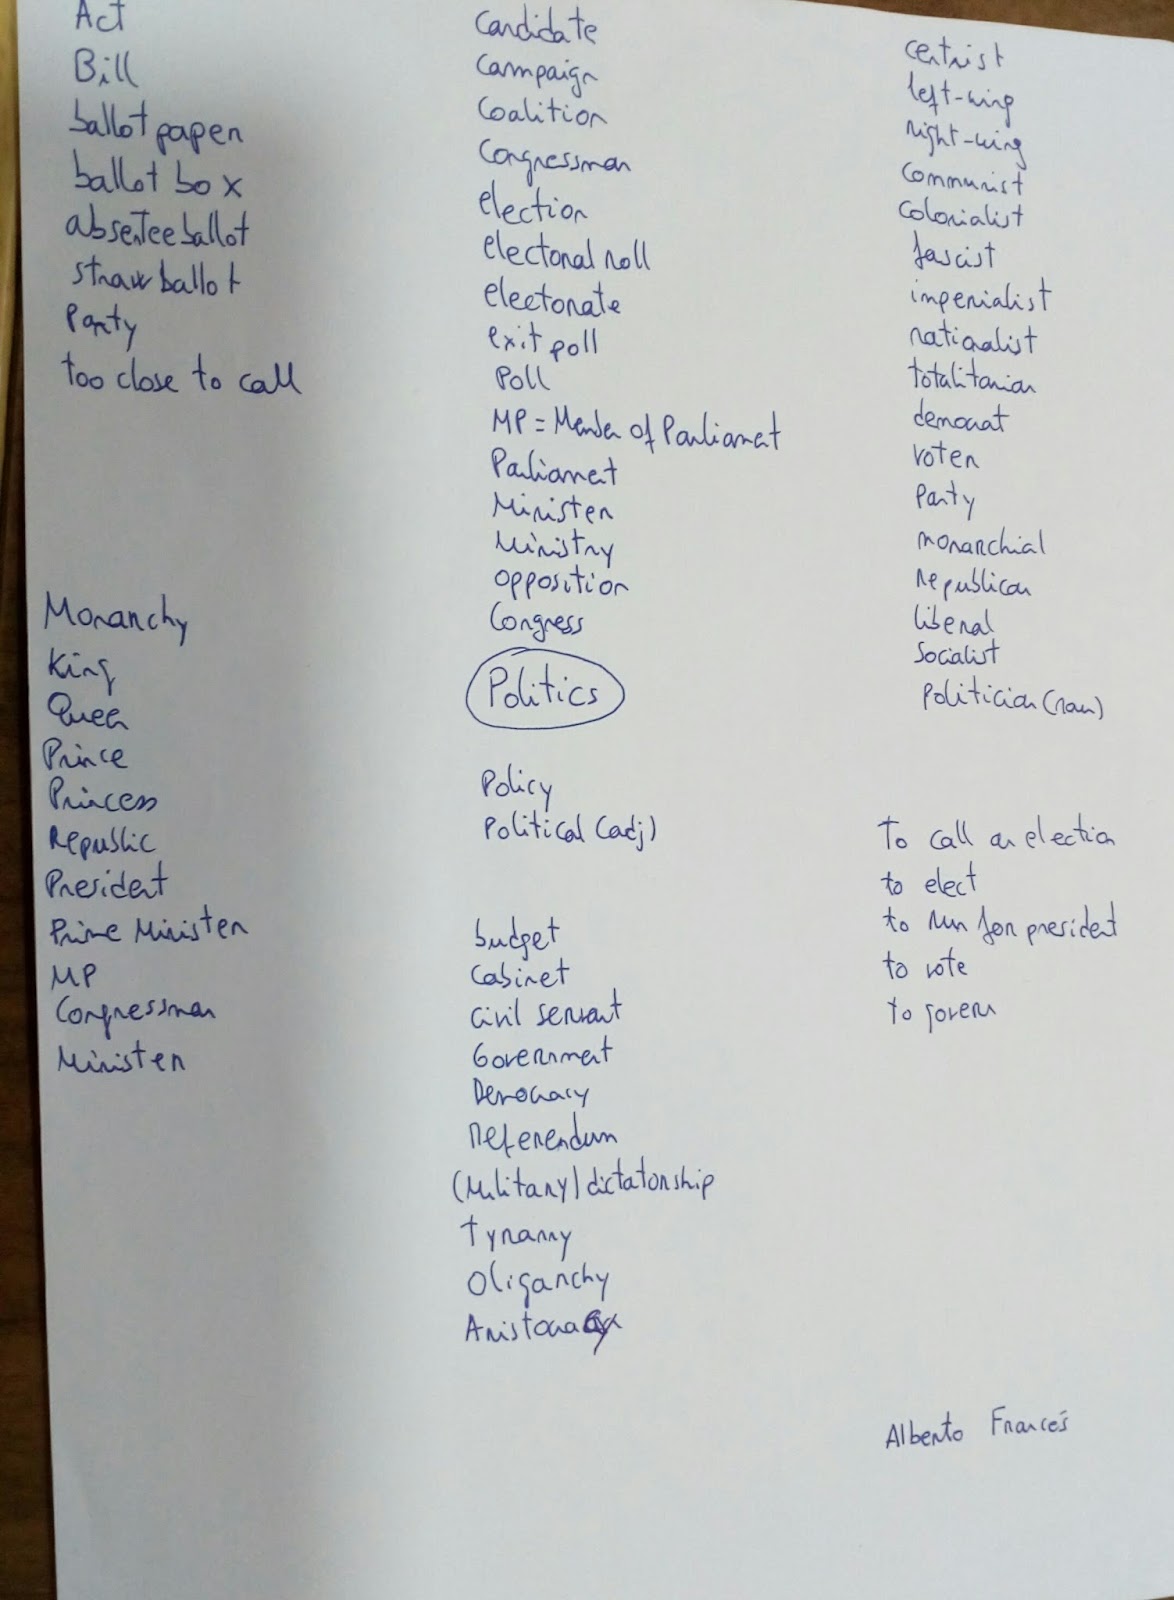 Act
Bill
ballot paper
ballot box
absentee ballot
straw ballot
Party
too close to call
Monarchy
King
Queen
Prince
Princess
Republic
President
Prime Minister
MP
Congressman
Minister
Candidate
Campaign
Coalition
Congressman
election
electoral roll
electorate
exit poll
Poll
MP = Member of Parliament
Parliament
Minister
Ministry
opposition
Congress
Politics
Policy
Political (adj)
budget
Cabinet
civil servant
Government
Democracy
Referendum
(Military) dictatorship
Tyranny
Oligarchy
Aristocracy
centrist
left-wing
right-wing
communist
colonialist
fascist
imperialist
nationalist
totalitarian
democrat
voter
Party
monarchial
republican
liberal
socialist
politician (noun)
To call an election
to elect
to run for president
to vote
to govern
Alberto Francés